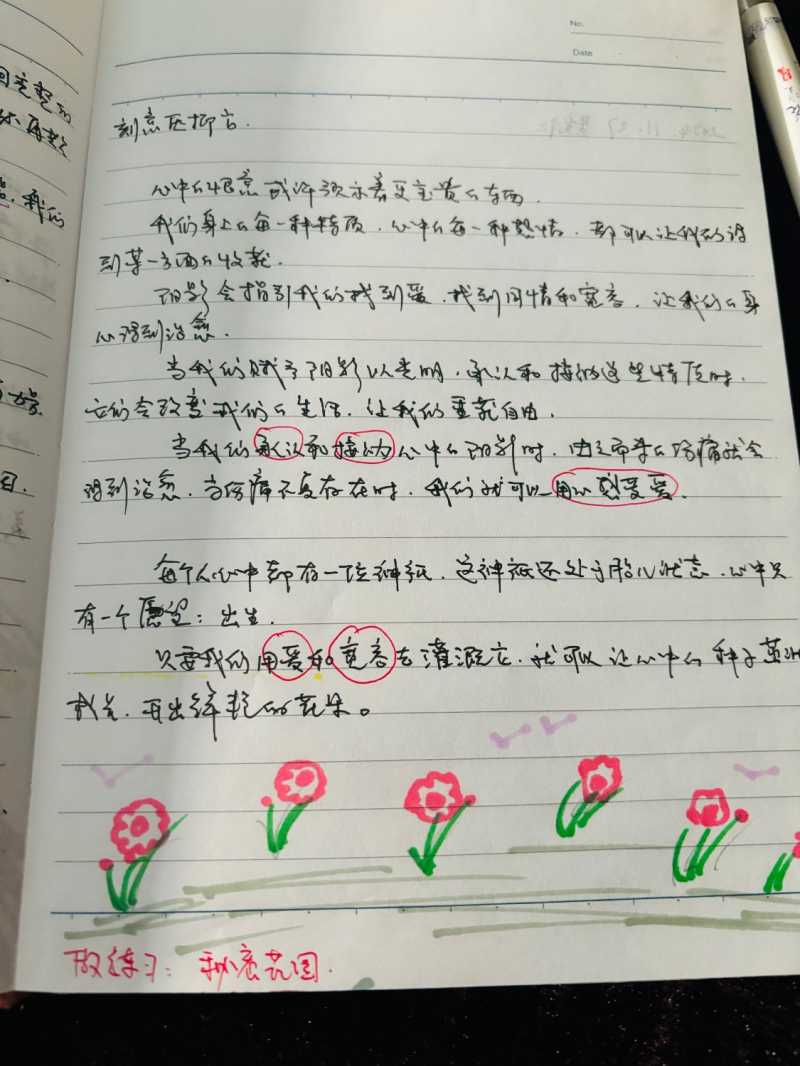 No.
Date
刻意压抑它.
心中的恨意或许预示着更宝贵的东西.
我们身上的每一种特质.心中的每一种热情.都可以让我们得
到某一方面的收获.
阴影会指引我们找到爱.找到同情和宽容.让我们的身
心得到治愈.
当我们赋予阴影以光明.承认和接纳这些特质时.
它们会改变我们的生活.让我们重获自由.
当我们承认和接纳心中的阴影时.由之而来的伤痛就会
得到治愈.当伤痛不复存在时.我们就可以用心感受爱.
每个人心中都有一位神祇.这神祇还处于胎儿状态.心中只
有一个愿望:出生.
只要我们用爱和宽容去灌溉它.就可以让心中的种子茁壮
成长.开出绚烂的花朵。
做练习:秘密花园.
我们